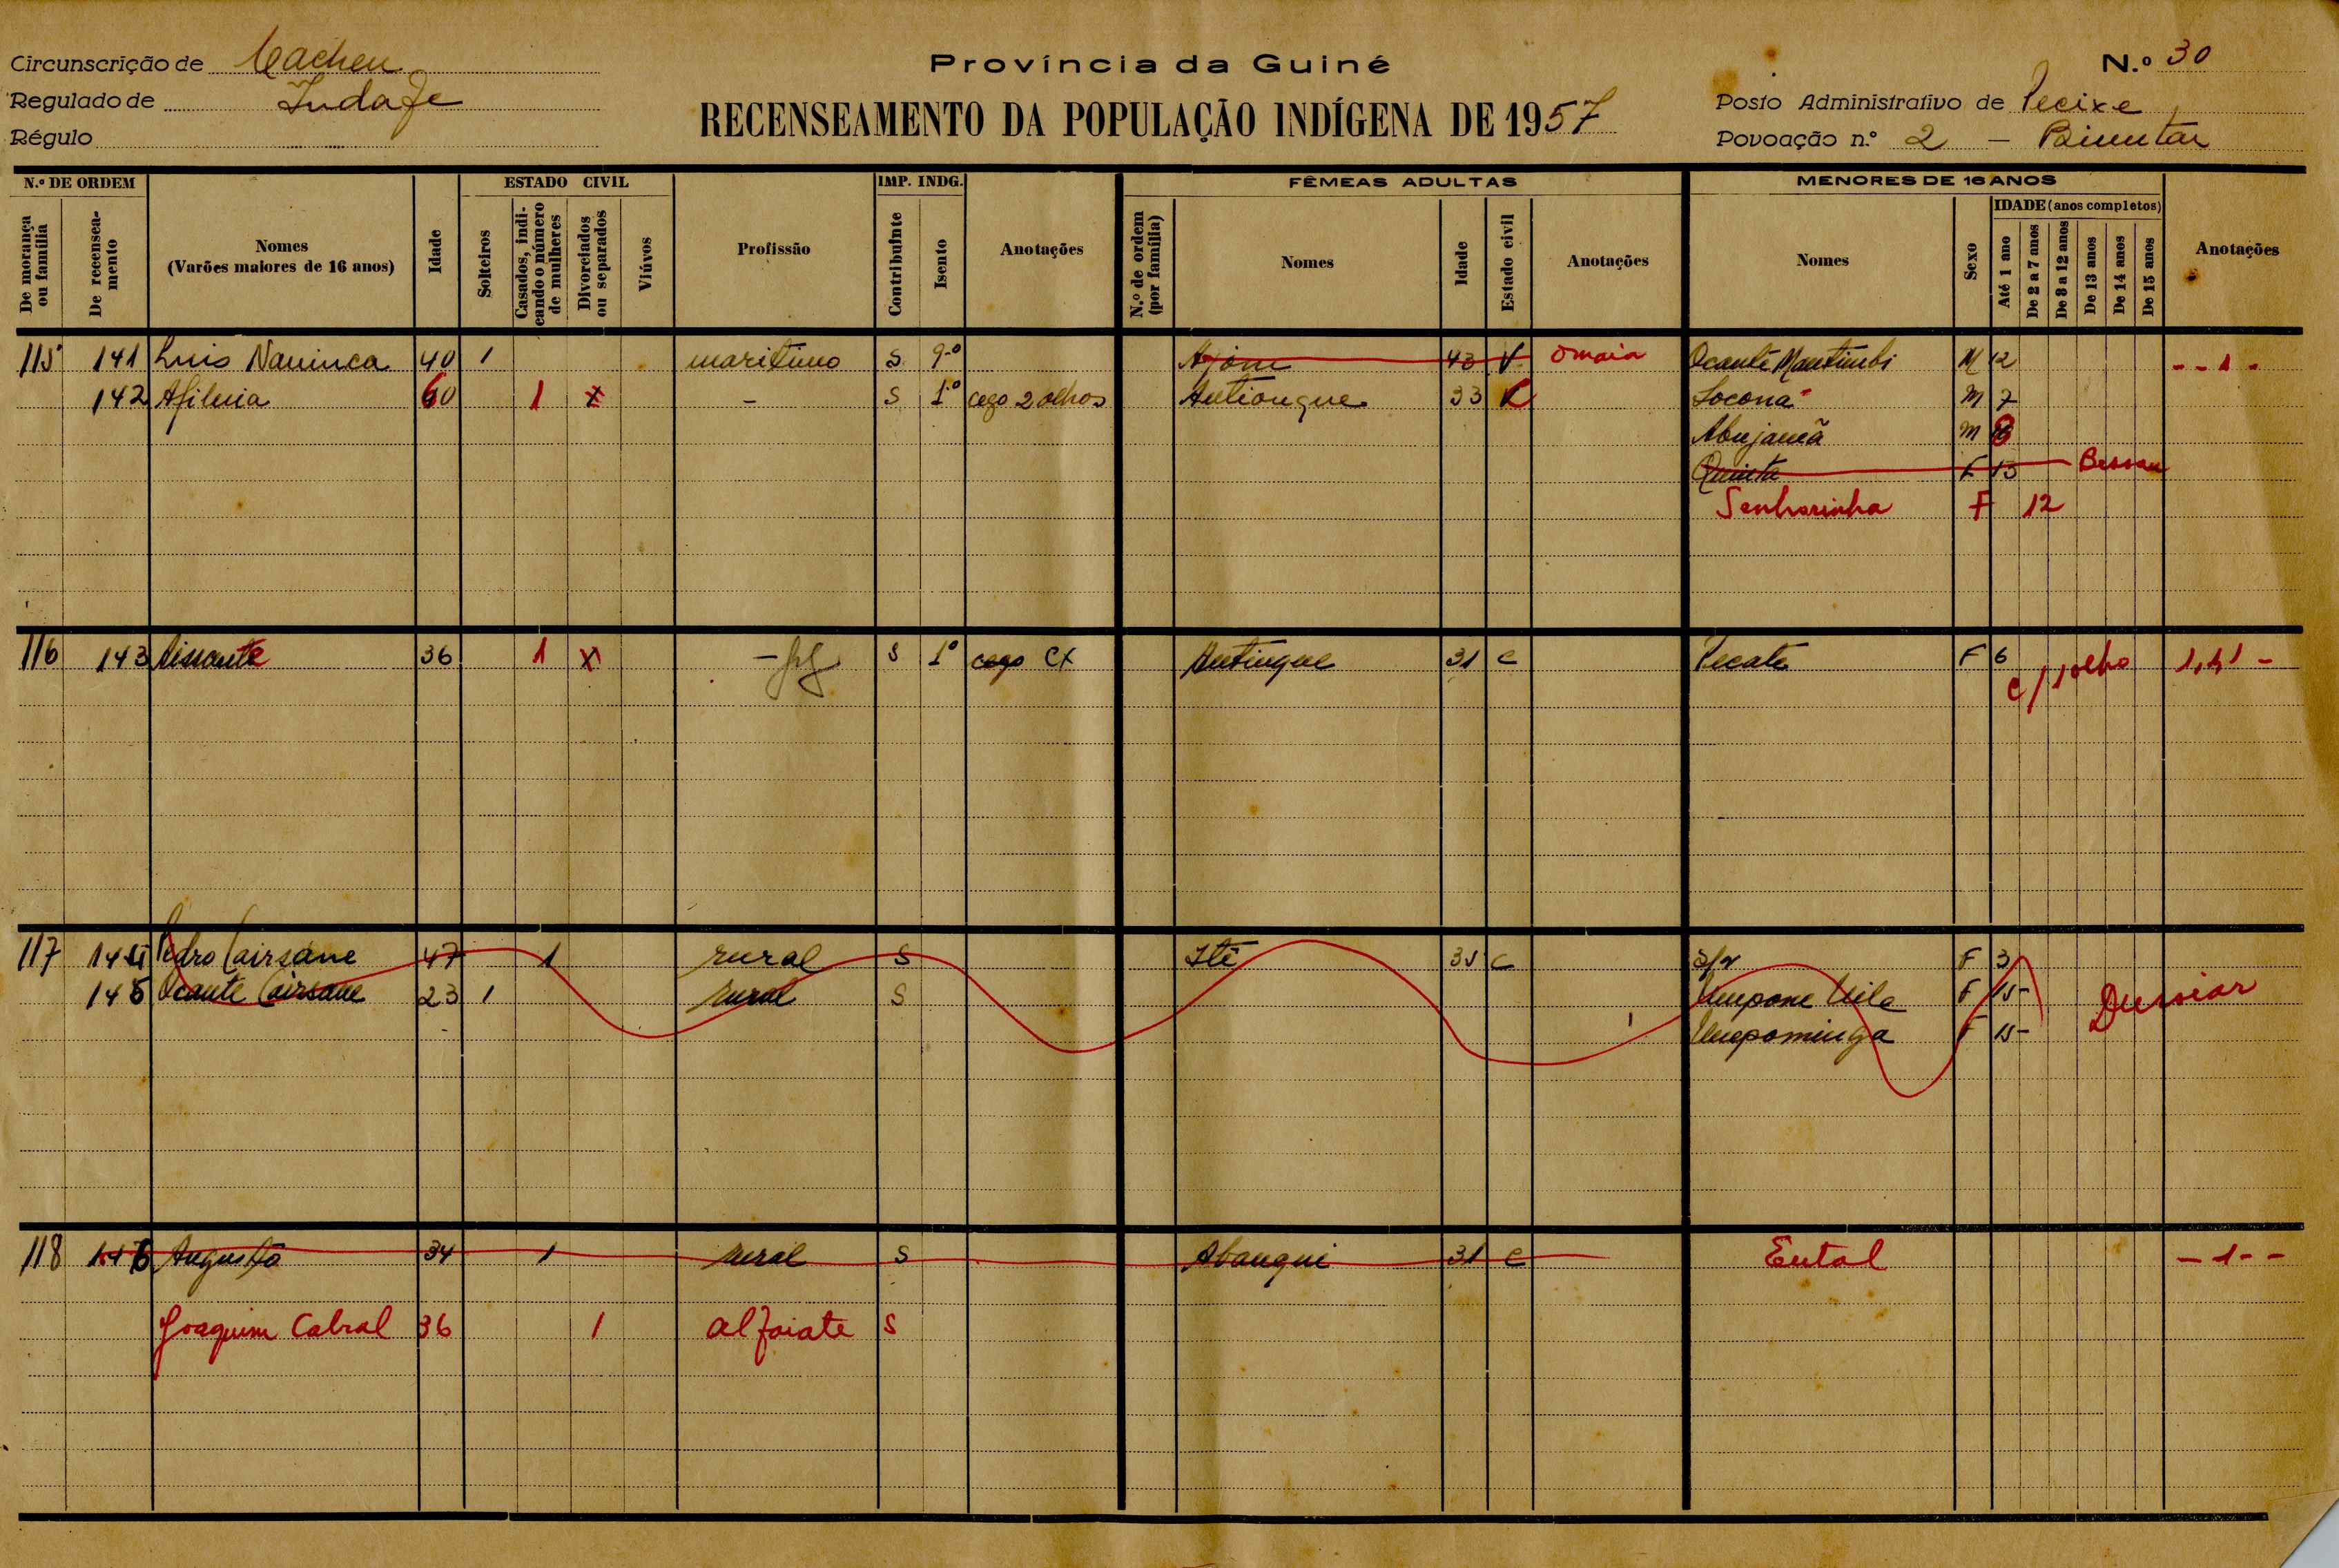 Circunscrição de Cacheu
Regulado de Indafe
Régulo
Província da Guiné
RECENSEAMENTO DA POPULAÇÃO INDÍGENA DE 1957
N.º 30
Posto Administrativo de Pecixe
Povoação n.º 2 — Bimutar
N.º DE ORDEM
De morança ou família
De recenseamento
Nomes
(Varões maiores de 16 anos)
Idade
ESTADO CIVIL
Solteiros
Casados, indicando o número de mulheres
Divorciados ou separados
Viúvos
Profissão
IMP. INDG.
Contribuinte
Isento
Anotações
FÊMEAS ADULTAS
N.º de ordem (por família)
Nomes
Idade
Estado civil
Anotações
MENORES DE 16 ANOS
Nomes
Sexo
IDADE (anos completos)
Até 1 ano
De 2 a 7 anos
De 8 a 12 anos
De 13 anos
De 14 anos
De 15 anos
Anotações
115 141 Luis Naninca 40 1 maritimo S 9.º 43 V Ocante M 12 - - 1 -
142 60 1 x - S 1º cego 2 olhos Antiongue 33 Socona M 7
M
Quinta F 13 Bessau
Senhorinha F 12
116 143 36 1 x - S 1º cego Antingue 31 C Pecate F 6 c/ 1 olho
117 144 Pedro Cairsane 47 1 rural S Itê C S/n F 3
145 Ocante Cairsane 23 1 rural S F 15
F 15
118 146 Augusto 34 1 rural S Abangui 31 C Eutal - 1 - -
Joaquim Cabral 36 1 alfaiate S